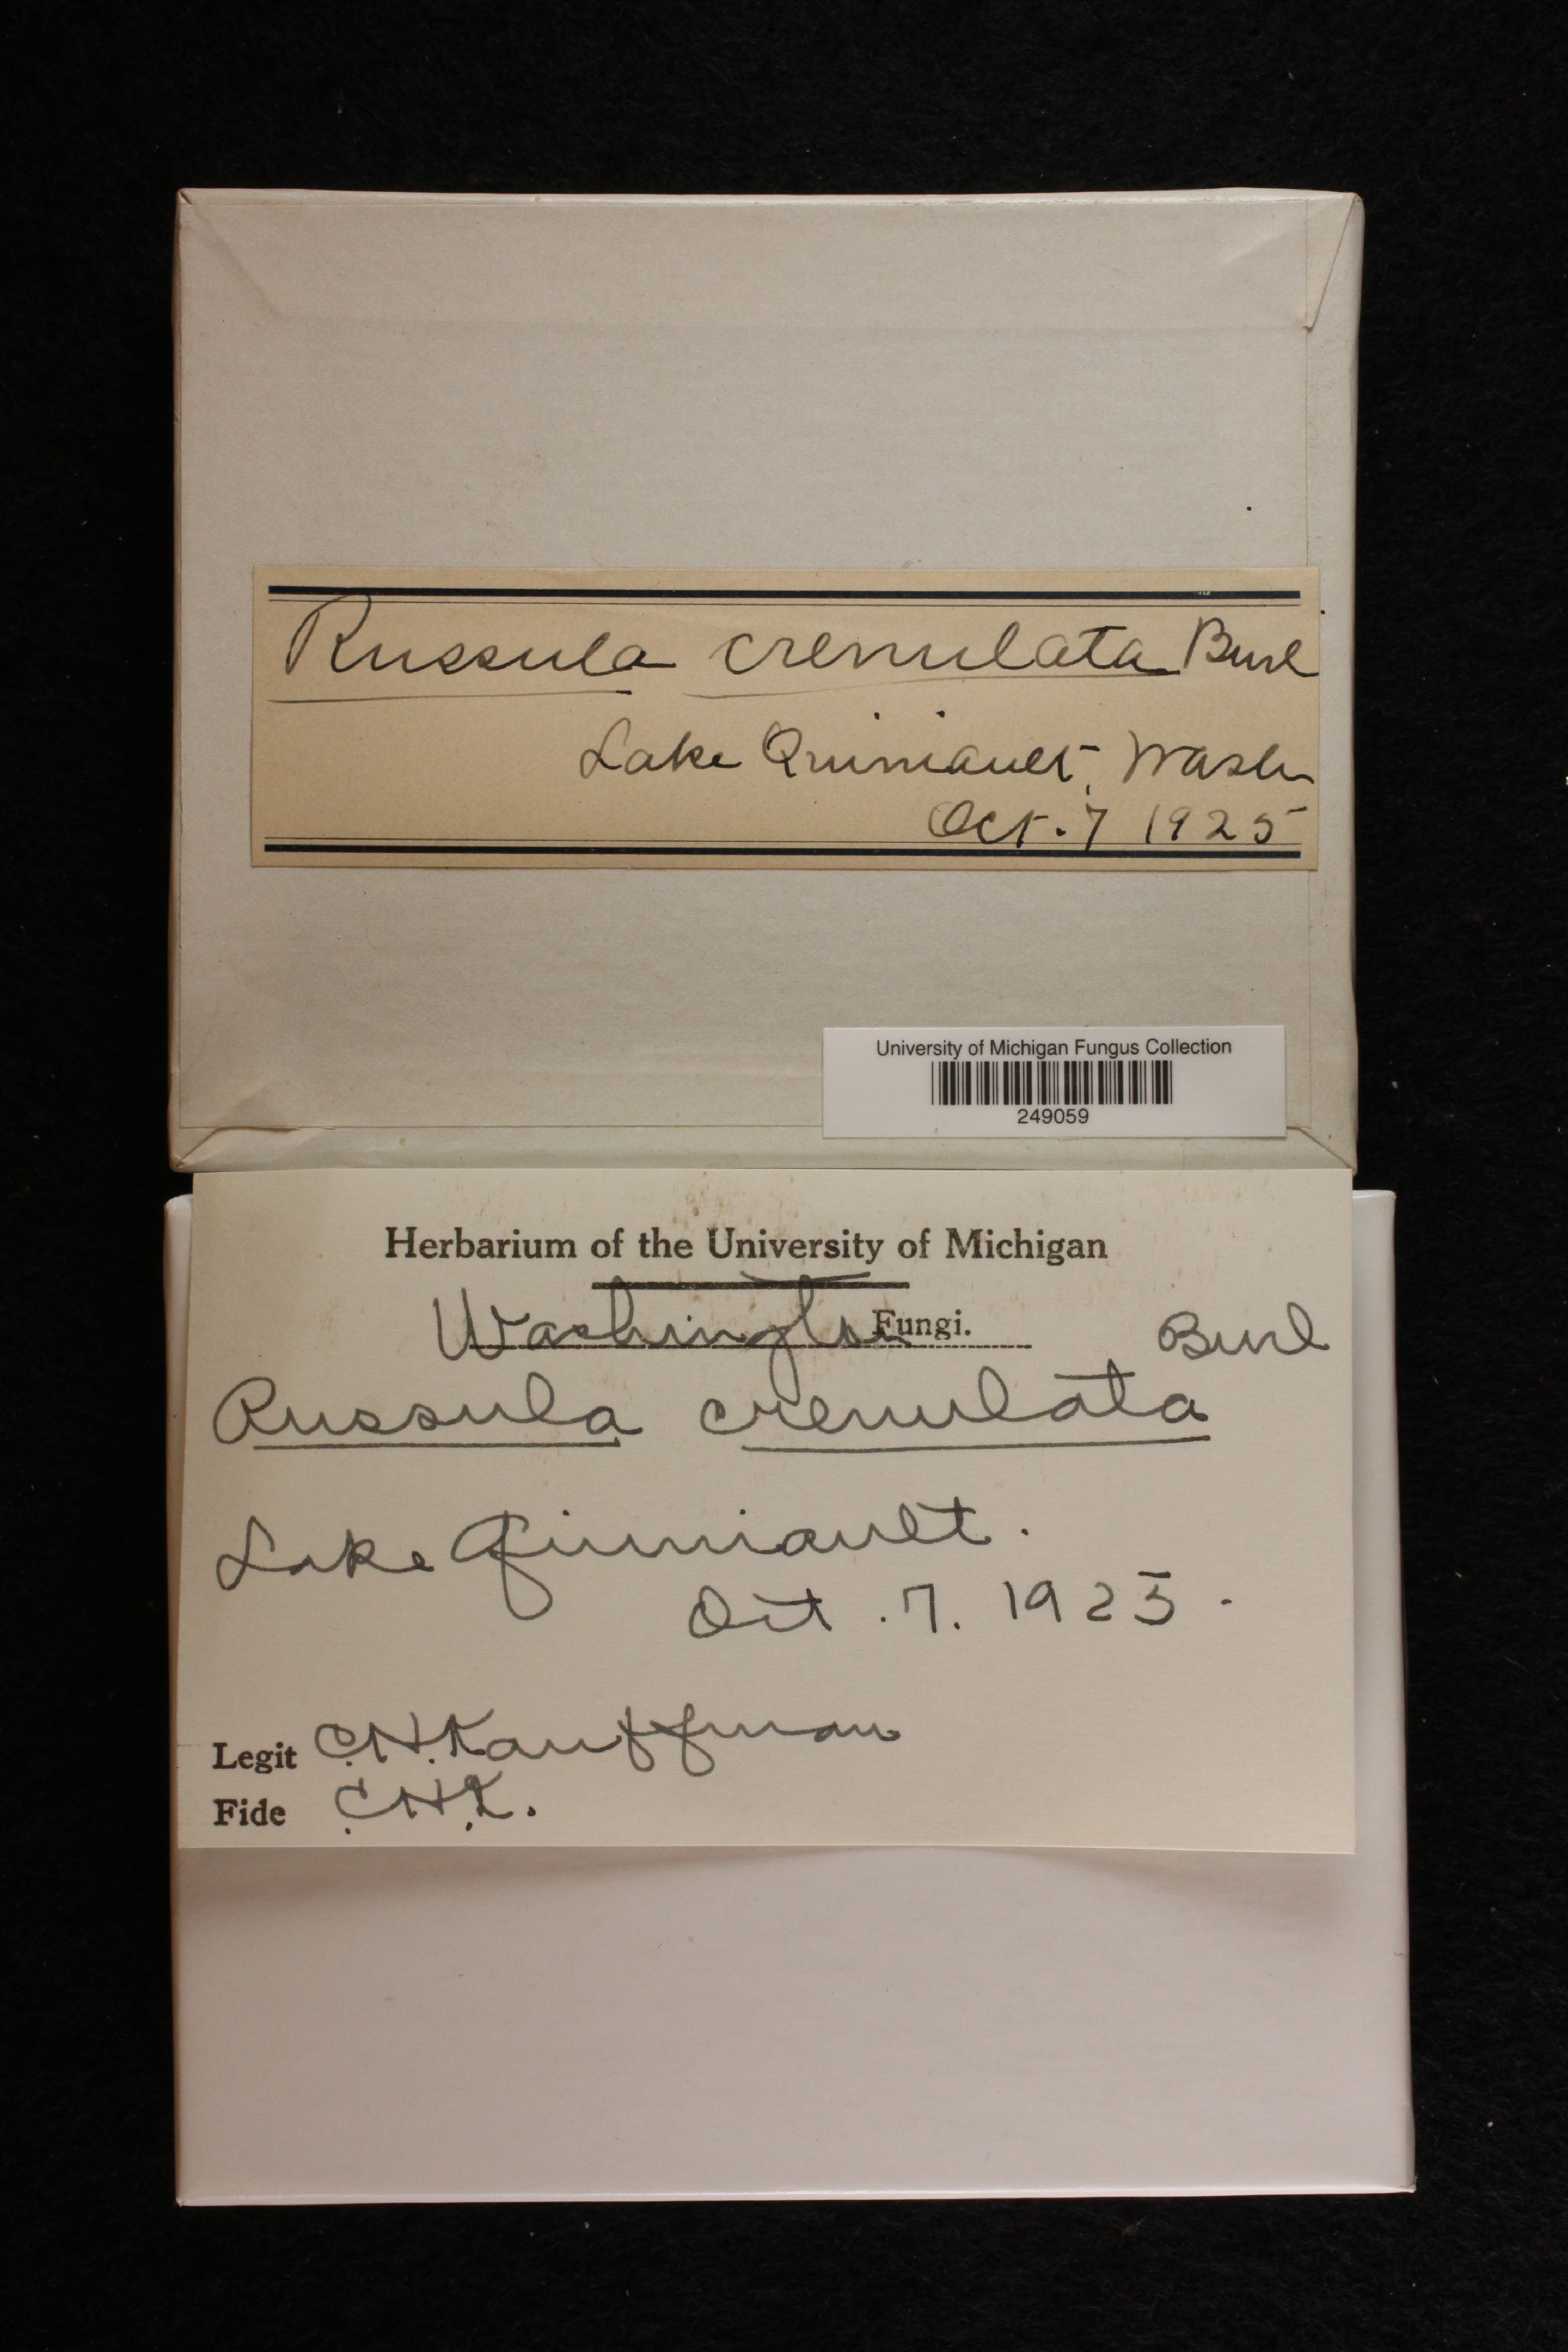 Russula crenulata Burl
Lake Quiniault, Wash
Oct. 7 1925
University of Michigan Fungus Collection
249059
Herbarium of the University of Michigan
Washington Fungi.
Burl
Russula crenulata
Lake Quiniault.
Oct. 7. 1925.
Legit C.H. Kauffman
Fide C.H.K.